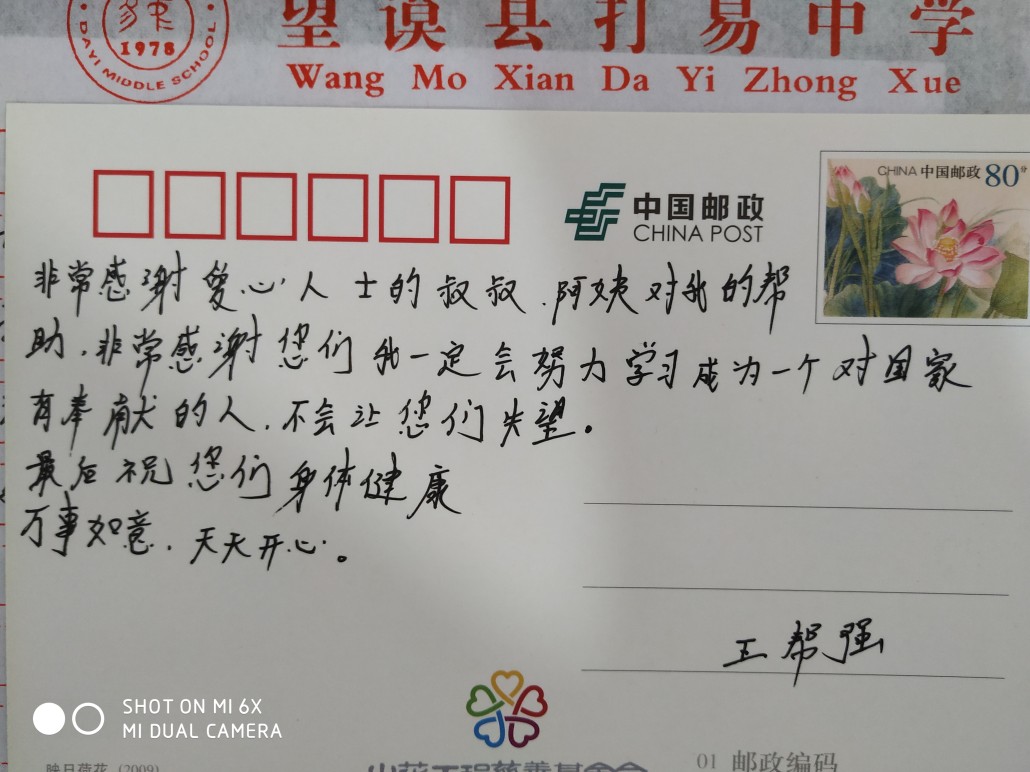 DAYI MIDDLE SCHOOL
1978
望谟县打易中学
Wang Mo Xian Da Yi Zhong Xue
中国邮政
CHINA POST
CHINA 中国邮政 80分
非常感谢爱心人士的叔叔.阿姨对我的帮
助.非常感谢您们我一定会努力学习成为一个对国家
有奉献的人.不会让您们失望。
最后祝您们身体健康
万事如意.天天开心。
王帮强
SHOT ON MI 6X
MI DUAL CAMERA
映月荷花 (2009)
01 邮政编码